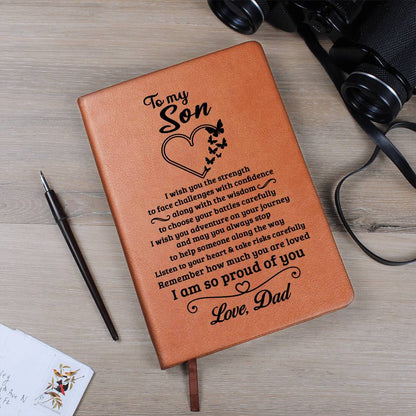 To my
Son
I wish you the strength
to face challenges with confidence
along with the wisdom
to choose your battles carefully
I wish you adventure on your journey
and may you always stop
to help someone along the way
Listen to your heart & take risks carefully
Remember how much you are loved
I am so proud of you
Love, Dad